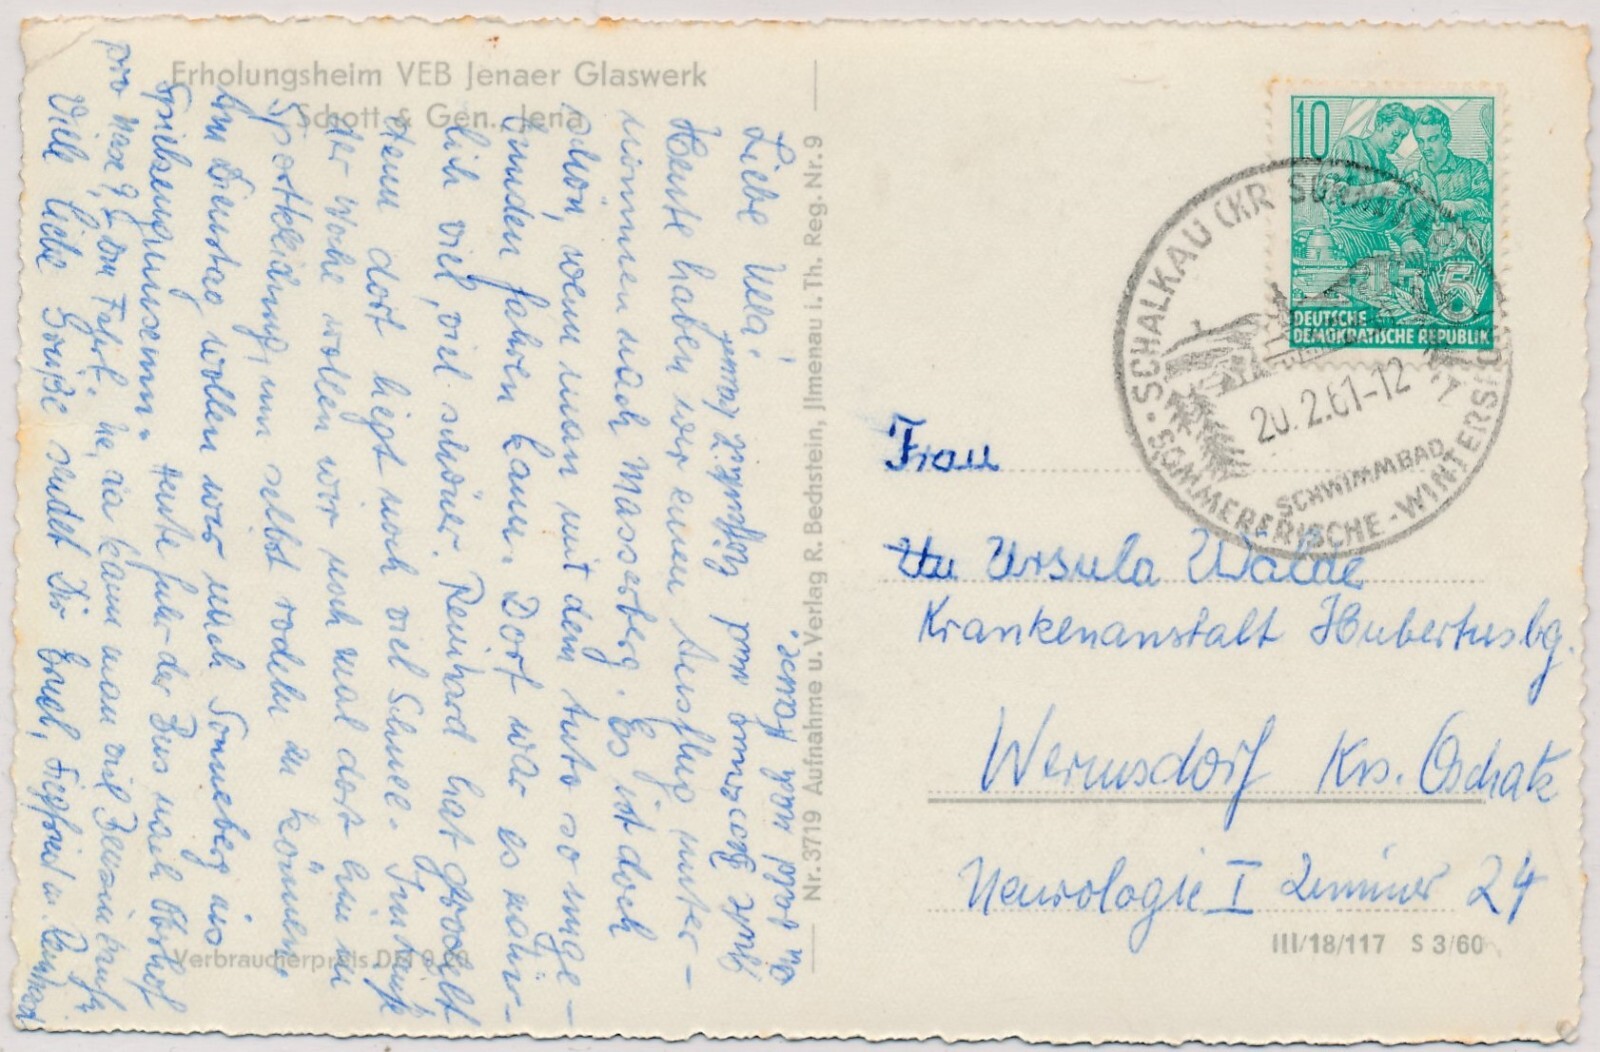 Erholungsheim VEB Jenaer Glaswerk
Schott & Gen., Jena
Liebe Ulla!
Heute haben wir einen Ausflug unter-
nommen nach Masserberg. Es ist doch
schön, wenn man mit dem Auto so einge-
Stunden fahren kann. Dort war es näm-
lich viel, viel schöner. Reinhard hat gerodelt
denn dort liegt noch viel Schnee. Im Laufe
der Woche wollen wir noch mal dort hin um
Sportkleidung, um selbst rodeln zu können.
Am Dienstag wollen wir nach Sonneberg ins
Spielzeugmuseum. Heute fuhr der Bus nach Oberhof
pro Nase 9,- DM Fahrt. Ne, da kann man viel Benzin
Viele liebe Grüße sendet Dir Emel, Siegfried u. Reinhard
und
nach Hause.
Nr. 3719 Aufnahme u. Verlag R. Bechstein, Jlmenau i. Th. Reg. Nr. 9
Verbraucherpreis DM 0,20
10
5
DEUTSCHE
DEMOKRATISCHE REPUBLIK
SCHALKAU (KR SONNEBERG)
20.2.61-12
SCHWIMMBAD
SOMMERFRISCHE - WINTERSPORT
Frau
Ursula Walde
Krankenanstalt Hubertusbg.
Wermsdorf Krs. Oschatz
Neurologie I Zimmer 24
III/18/117 S 3/60